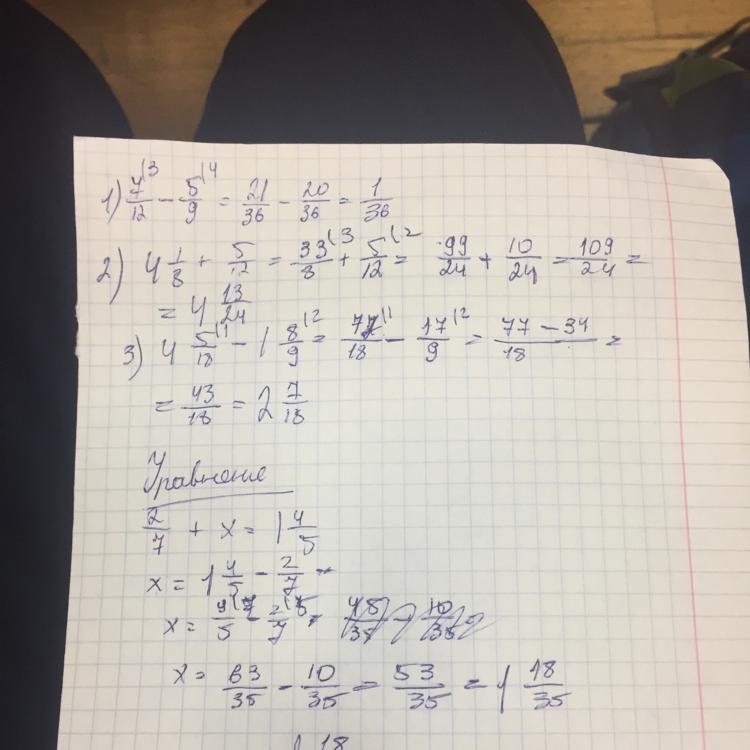 1) 7/12 |3 - 5/9 |4 = 21/36 - 20/36 = 1/36
2) 4 1/8 + 5/12 = 33/8 |3 + 5/12 |2 = 99/24 + 10/24 = 109/24 =
= 4 13/24
3) 4 5/18 |1 - 1 8/9 |2 = 77/18 |1 - 17/9 |2 = 77 - 34/18 =
= 43/18 = 2 7/18
Уравнение
2/7 + x = 1 4/5
x = 1 4/5 - 2/7
x = 9/5 |7 - 2/7 |5 =
x = 63/35 - 10/35 = 53/35 = 1 18/35
18